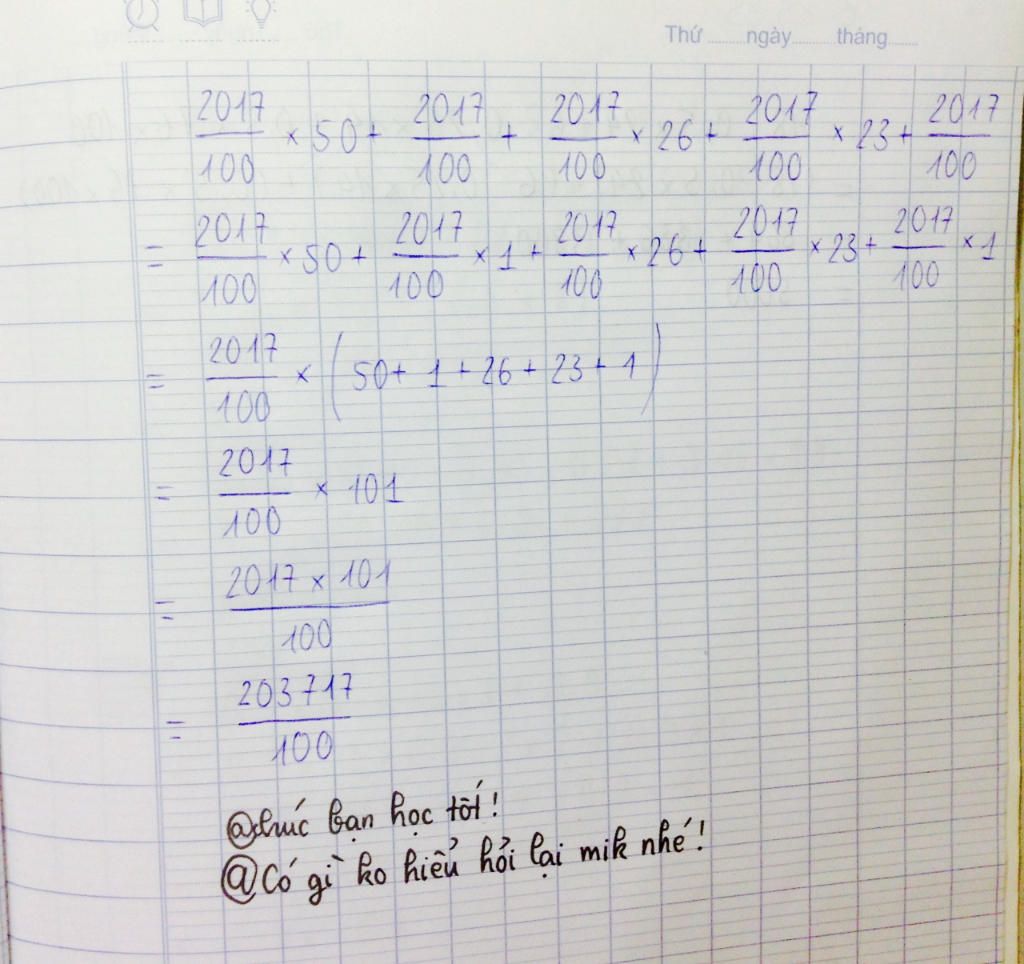 Thứ ........ ngày ........ tháng ........
2017/100 × 50 + 2017/100 + 2017/100 × 26 + 2017/100 × 23 + 2017/100
= 2017/100 × 50 + 2017/100 × 1 + 2017/100 × 26 + 2017/100 × 23 + 2017/100 × 1
= 2017/100 × ( 50 + 1 + 26 + 23 + 1 )
= 2017/100 × 101
= 2017 × 101/100
= 203717/100
@chúc bạn học tốt!
@Có gì ko hiểu hỏi lại mik nhé!